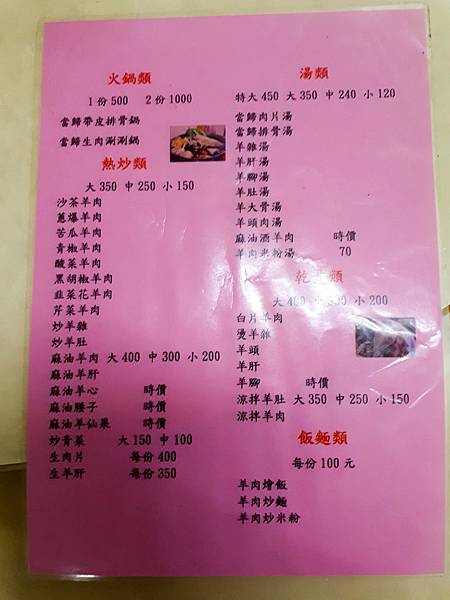 火鍋類
1份500 2份1000
當歸帶皮排骨鍋
當歸生肉涮涮鍋
熱炒類
大350 中250 小150
沙茶羊肉
蔥爆羊肉
苦瓜羊肉
青椒羊肉
酸菜羊肉
黑胡椒羊肉
韭菜花羊肉
芹菜羊肉
炒羊雜
炒羊肚
麻油羊肉 大400 中300 小200
麻油羊肝
麻油羊心 時價
麻油腰子 時價
麻油羊仙果 時價
炒青菜 大150 中100
生肉片 每份400
生羊肝 每份350
湯類
特大450 大350 中240 小120
當歸肉片湯
當歸排骨湯
羊雜湯
羊肝湯
羊腳湯
羊肚湯
羊大骨湯
羊頭肉湯
麻油酒羊肉 時價
羊肉米粉湯 70
乾 類
大400 300 小200
白片羊肉
燙羊雜
羊頭
羊肝
羊腳 時價
涼拌羊肚 大350 中250 小150
涼拌羊肉
飯麵類
每份100元
羊肉燴飯
羊肉炒麵
羊肉炒米粉